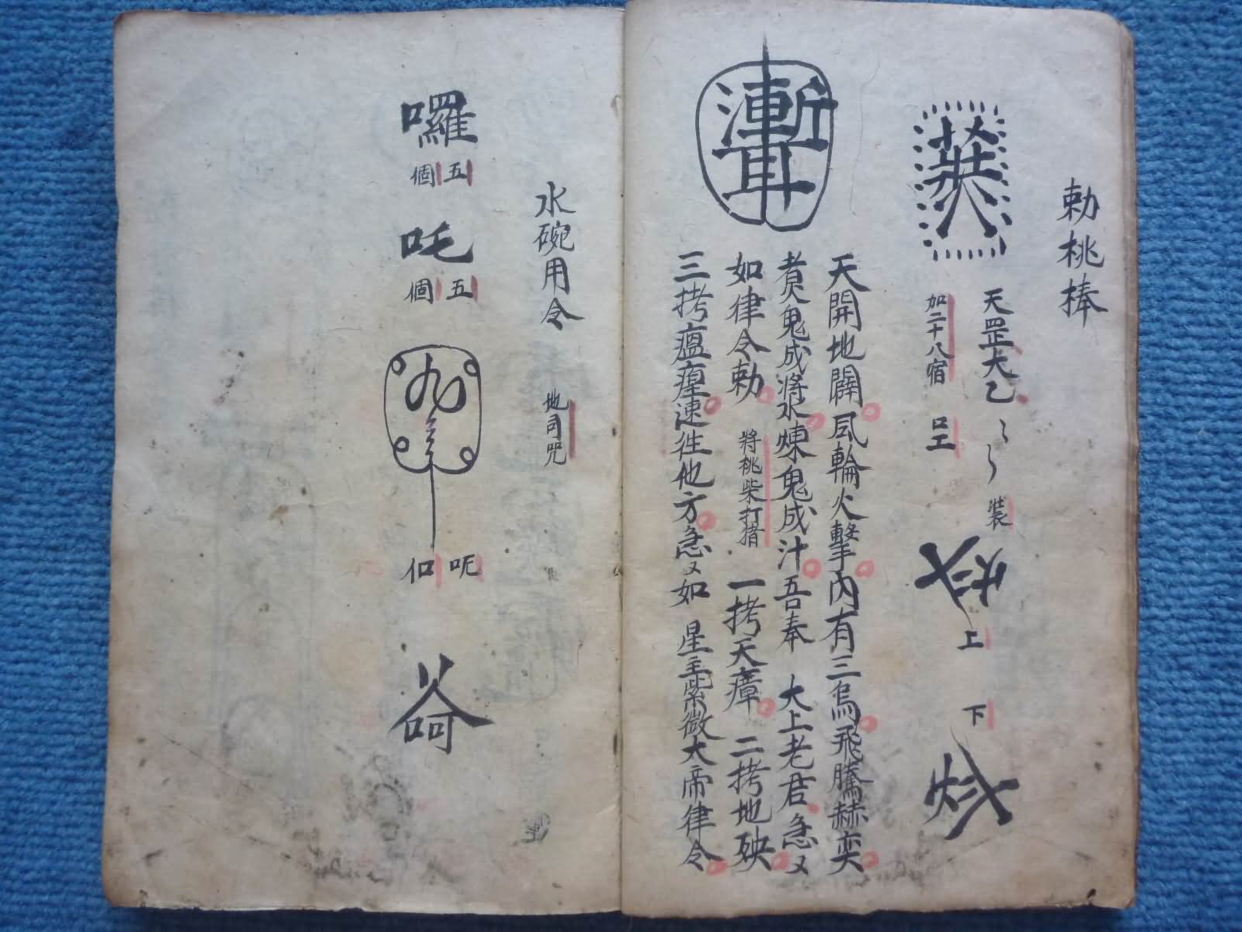 勅桃棒
天罡大乙
裝
上
下
加二十八宿
天開地闢風輪火擊內有三烏飛騰赫奕
煑鬼成將水煉鬼成汁吾奉 大上老君急又
如律令勅 將桃柴打猪 一拷天瘴二拷地殃
三拷瘟㾐速往他方急又如 星主紫微大帝律令
水碗用令 地司咒
囉 五個
吒 五個
呢